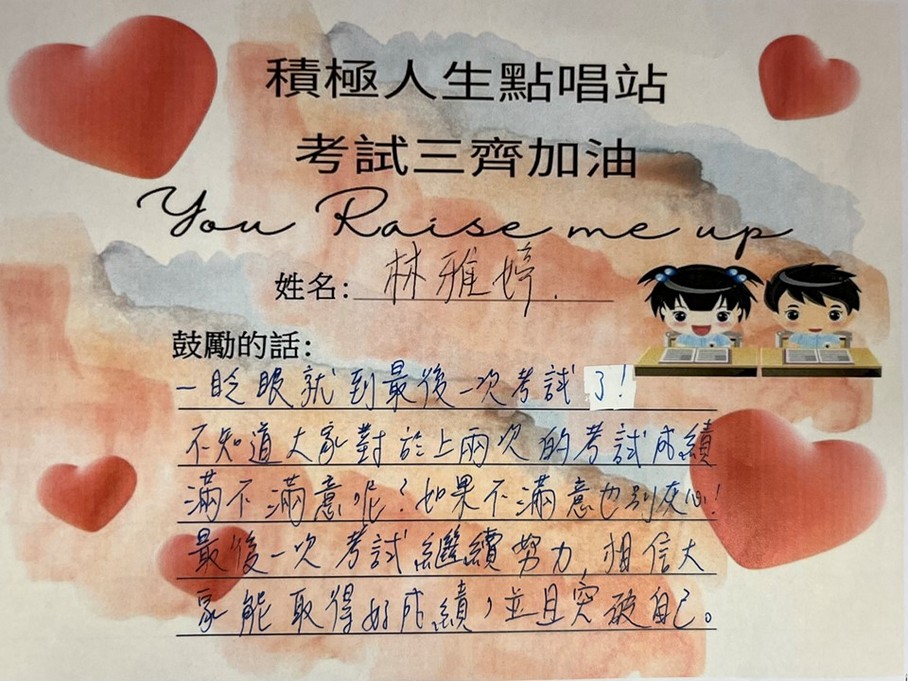 積極人生點唱站
考試三齊加油
You Raise me up
姓名:林雅婷.
鼓勵的話:
一眨眼就到最後一次考試了!
不知道大家對於上兩次的考試成績
滿不滿意呢?如果不滿意也別灰心!
最後一次考試繼續努力,相信大
家能取得好成績,並且突破自己。